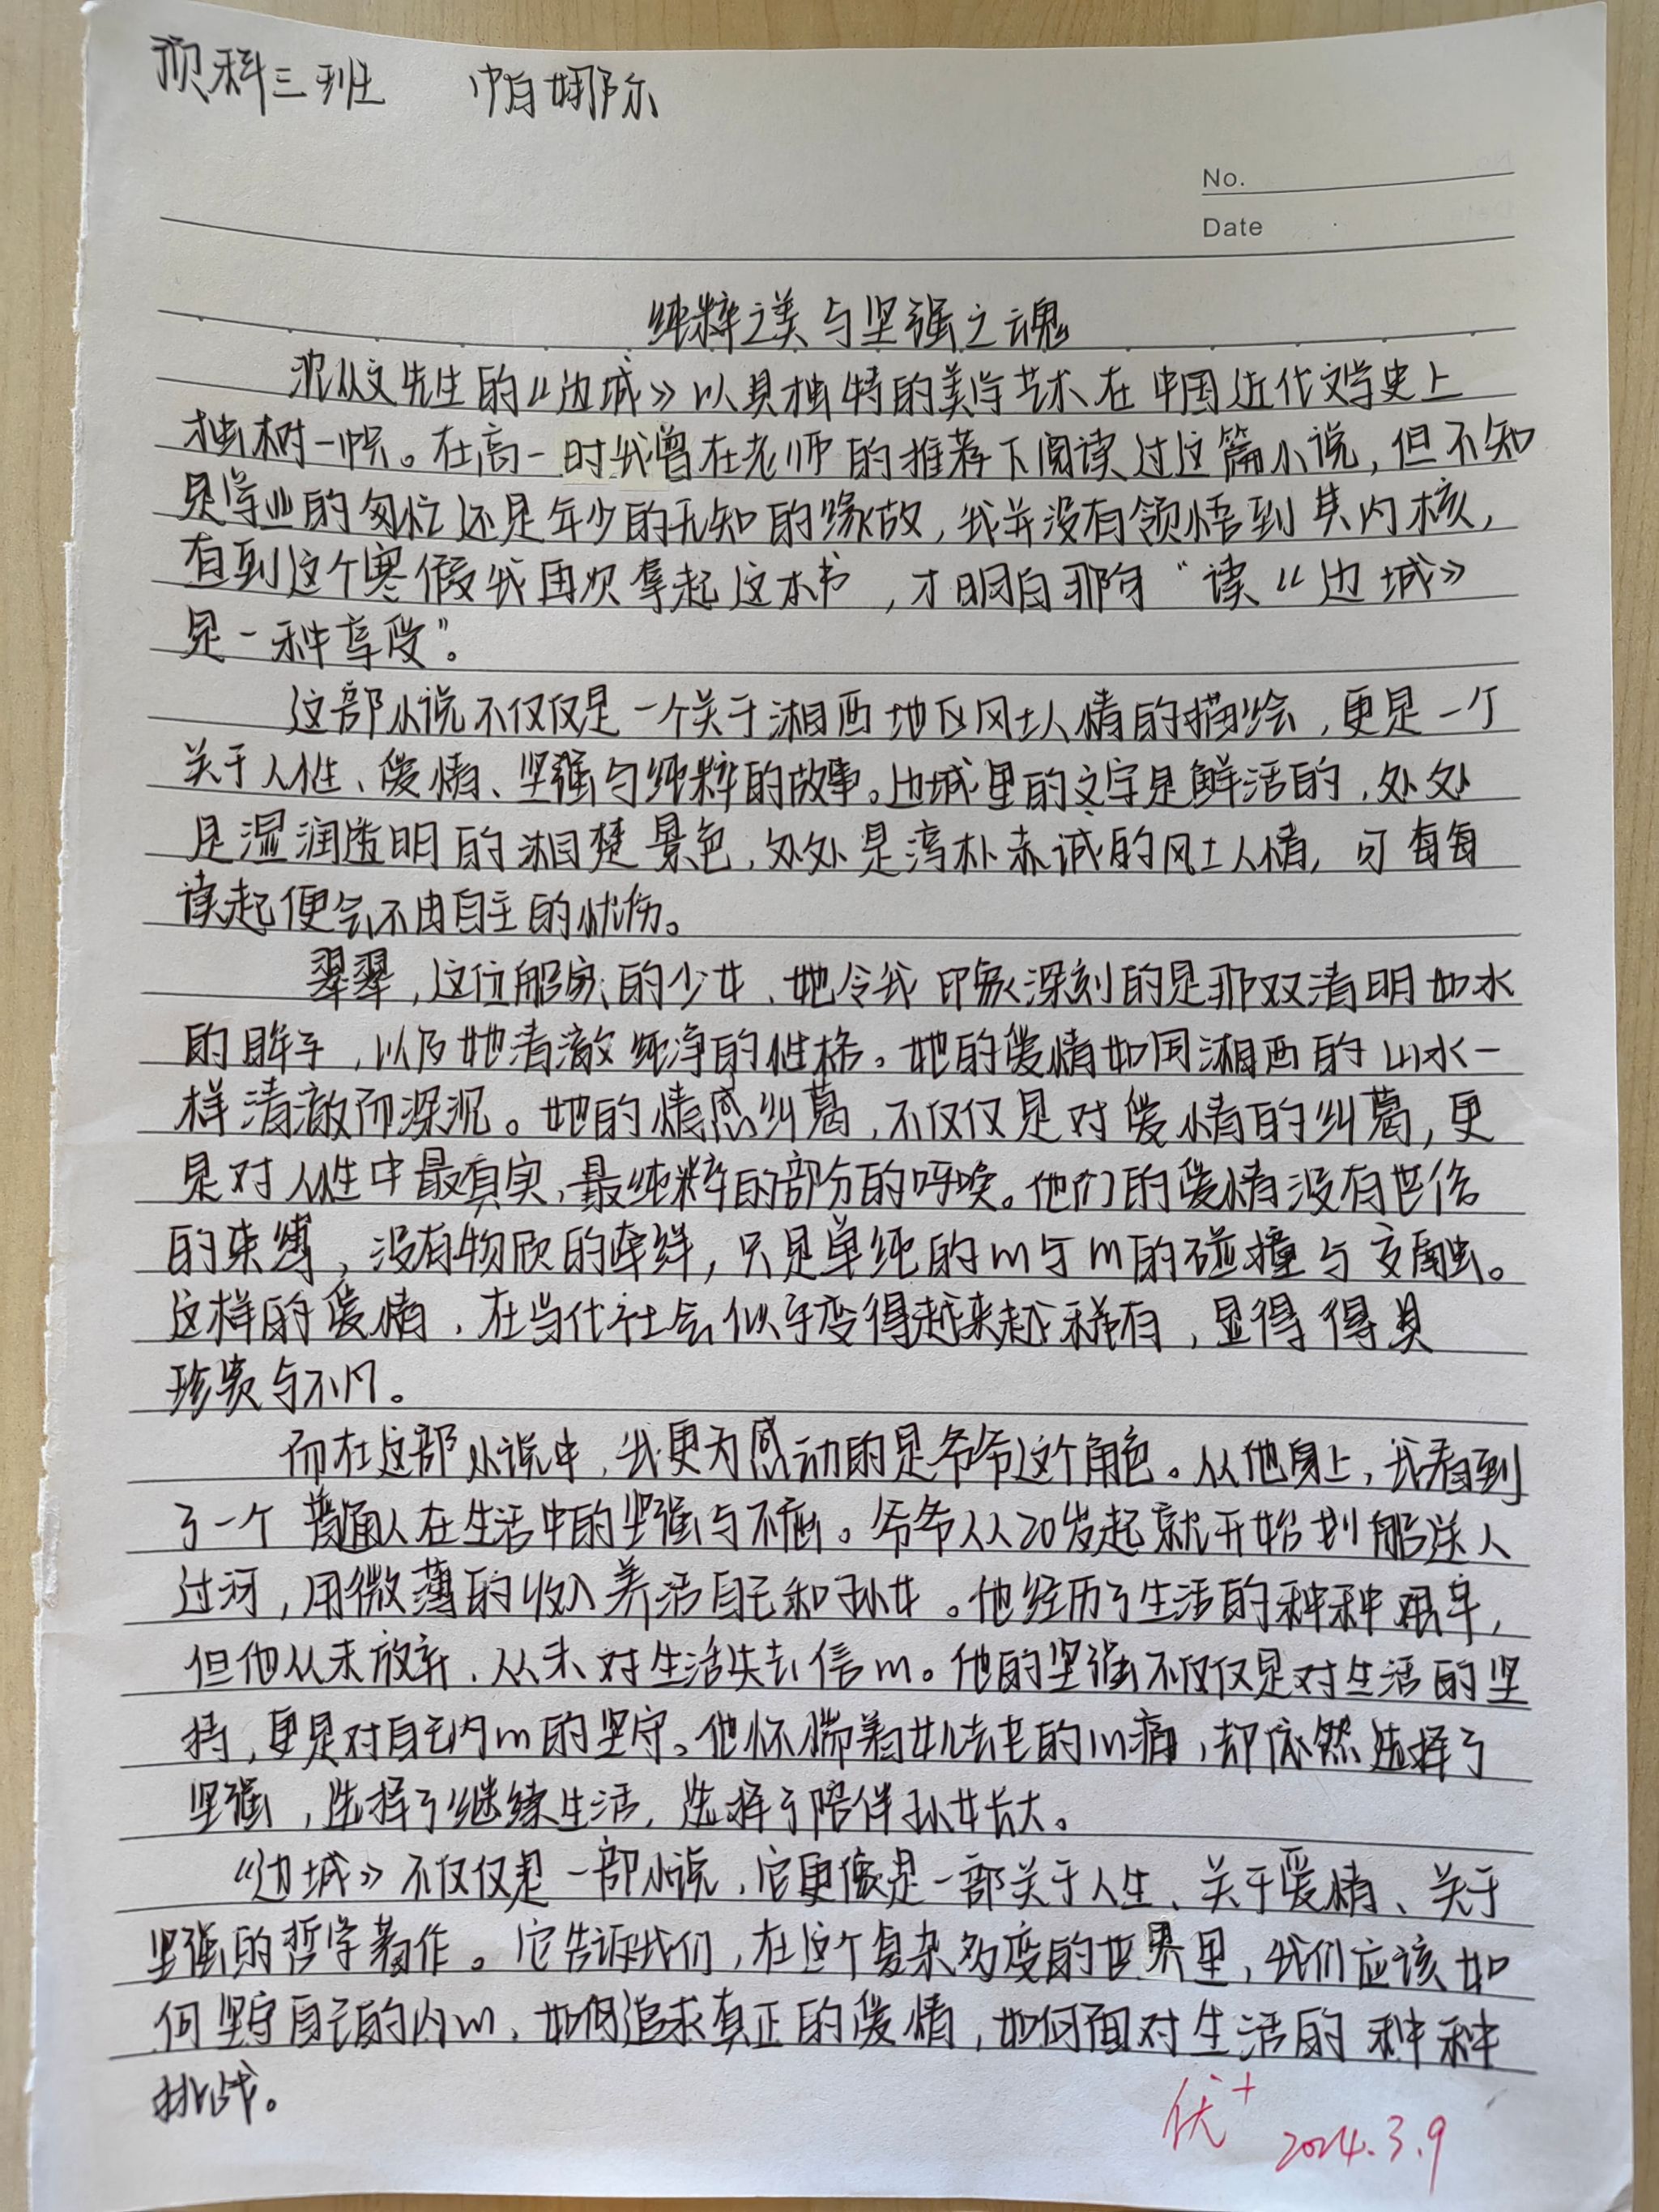 预科三班 帕娜尔
No.
Date
纯粹之美与坚强之魂
沈从文先生的《边城》以其独特的美学艺术在中国近代文学史上
独树一帜。在高一时我曾在老师的推荐下阅读过这篇小说，但不知
是学业的匆忙还是年少的无知的缘故，我并没有领悟到其内核，
直到这个寒假我再次拿起这本书，才明白那句“读《边城》
是一种享受”。
这部小说不仅仅是一个关于湘西地区风土人情的描绘，更是一个
关于人性、爱情、坚强与纯粹的故事。边城里的文字是鲜活的，处处
是湿润透明的湘楚景色，处处是淳朴赤诚的风土人情，可每每
读起便会不由自主的忧伤。
翠翠，这位船家的少女，她令我印象深刻的是那双清明如水
的眸子，以及她清澈纯净的性格。她的爱情如同湘西的山水一
样清澈而深沉。她的情感纠葛，不仅仅是对爱情的纠葛，更
是对人性中最真实、最纯粹的部分的呼唤。他们的爱情没有世俗
的束缚，没有物质的牵绊，只是单纯的心与心的碰撞与交融。
这样的爱情，在当代社会似乎变得越来越稀有，显得得其
珍贵与不凡。
而在这部小说中，我更为感动的是爷爷这个角色。从他身上，我看到
了一个普通人在生活中的坚强与不屈。爷爷从20岁起就开始划船送人
过河，用微薄的收入养活自己和孙女。他经历了生活的种种艰辛，
但他从未放弃，从未对生活失去信心。他的坚强不仅仅是对生活的坚
持，更是对自己内心的坚守。他怀揣着女儿去世的心痛，却依然选择了
坚强，选择了继续生活，选择了陪伴孙女长大。
《边城》不仅仅是一部小说，它更像是一部关于人生、关于爱情、关于
坚强的哲学著作。它告诉我们，在这个复杂多变的世界里，我们应该如
何坚守自己的内心，如何追求真正的爱情，如何面对生活的种种
挑战。
优+
2024.3.9